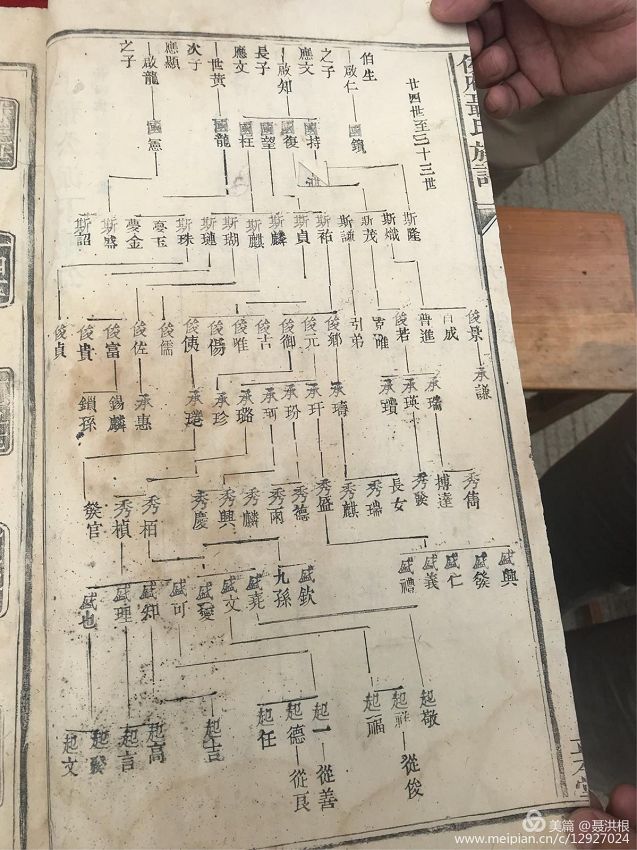 廿四世至三十三世
伯生
啟仁 國鎖
之子
應文 國持
啟知 國復
長子 國望
應文 國枉
世黃 國龍
次子
應顯
啟龍 國憲
之子
斯隆 斯熾 斯茂 斯謙 斯祐 斯貞 斯麟 斯麒 斯瑚 斯璉 斯珠 夢玉 夢金 斯盛 斯韶
俊景 百成 普進 俊若 引弟 俊鄉 俊元 俊御 俊吉 俊唯 俊傷 俊儀 俊儒 俊佐 俊富 俊貴 俊貞
承謙 承璠 承瑛 承瓚 承璹 承玕 承玢 承珂 承璐 承珍 承惠 錫麟 鎖孫
秀儁 搏達 秀發 長女 秀瑞 秀麒 秀盛 秀德 秀雨 秀麟 秀興 秀慶 秀栢 秀楨 發官
盛興 盛發 盛仁 盛義 盛禮 盛欽 九孫 盛堯 盛文 盛可 盛知 盛理 盛也
起敬 起福 起一 起德 起任 起吉 起高 起言 起發 起文
從俊 從善 從良
美篇 @聂洪根
www.meipian.cn/c/12927024